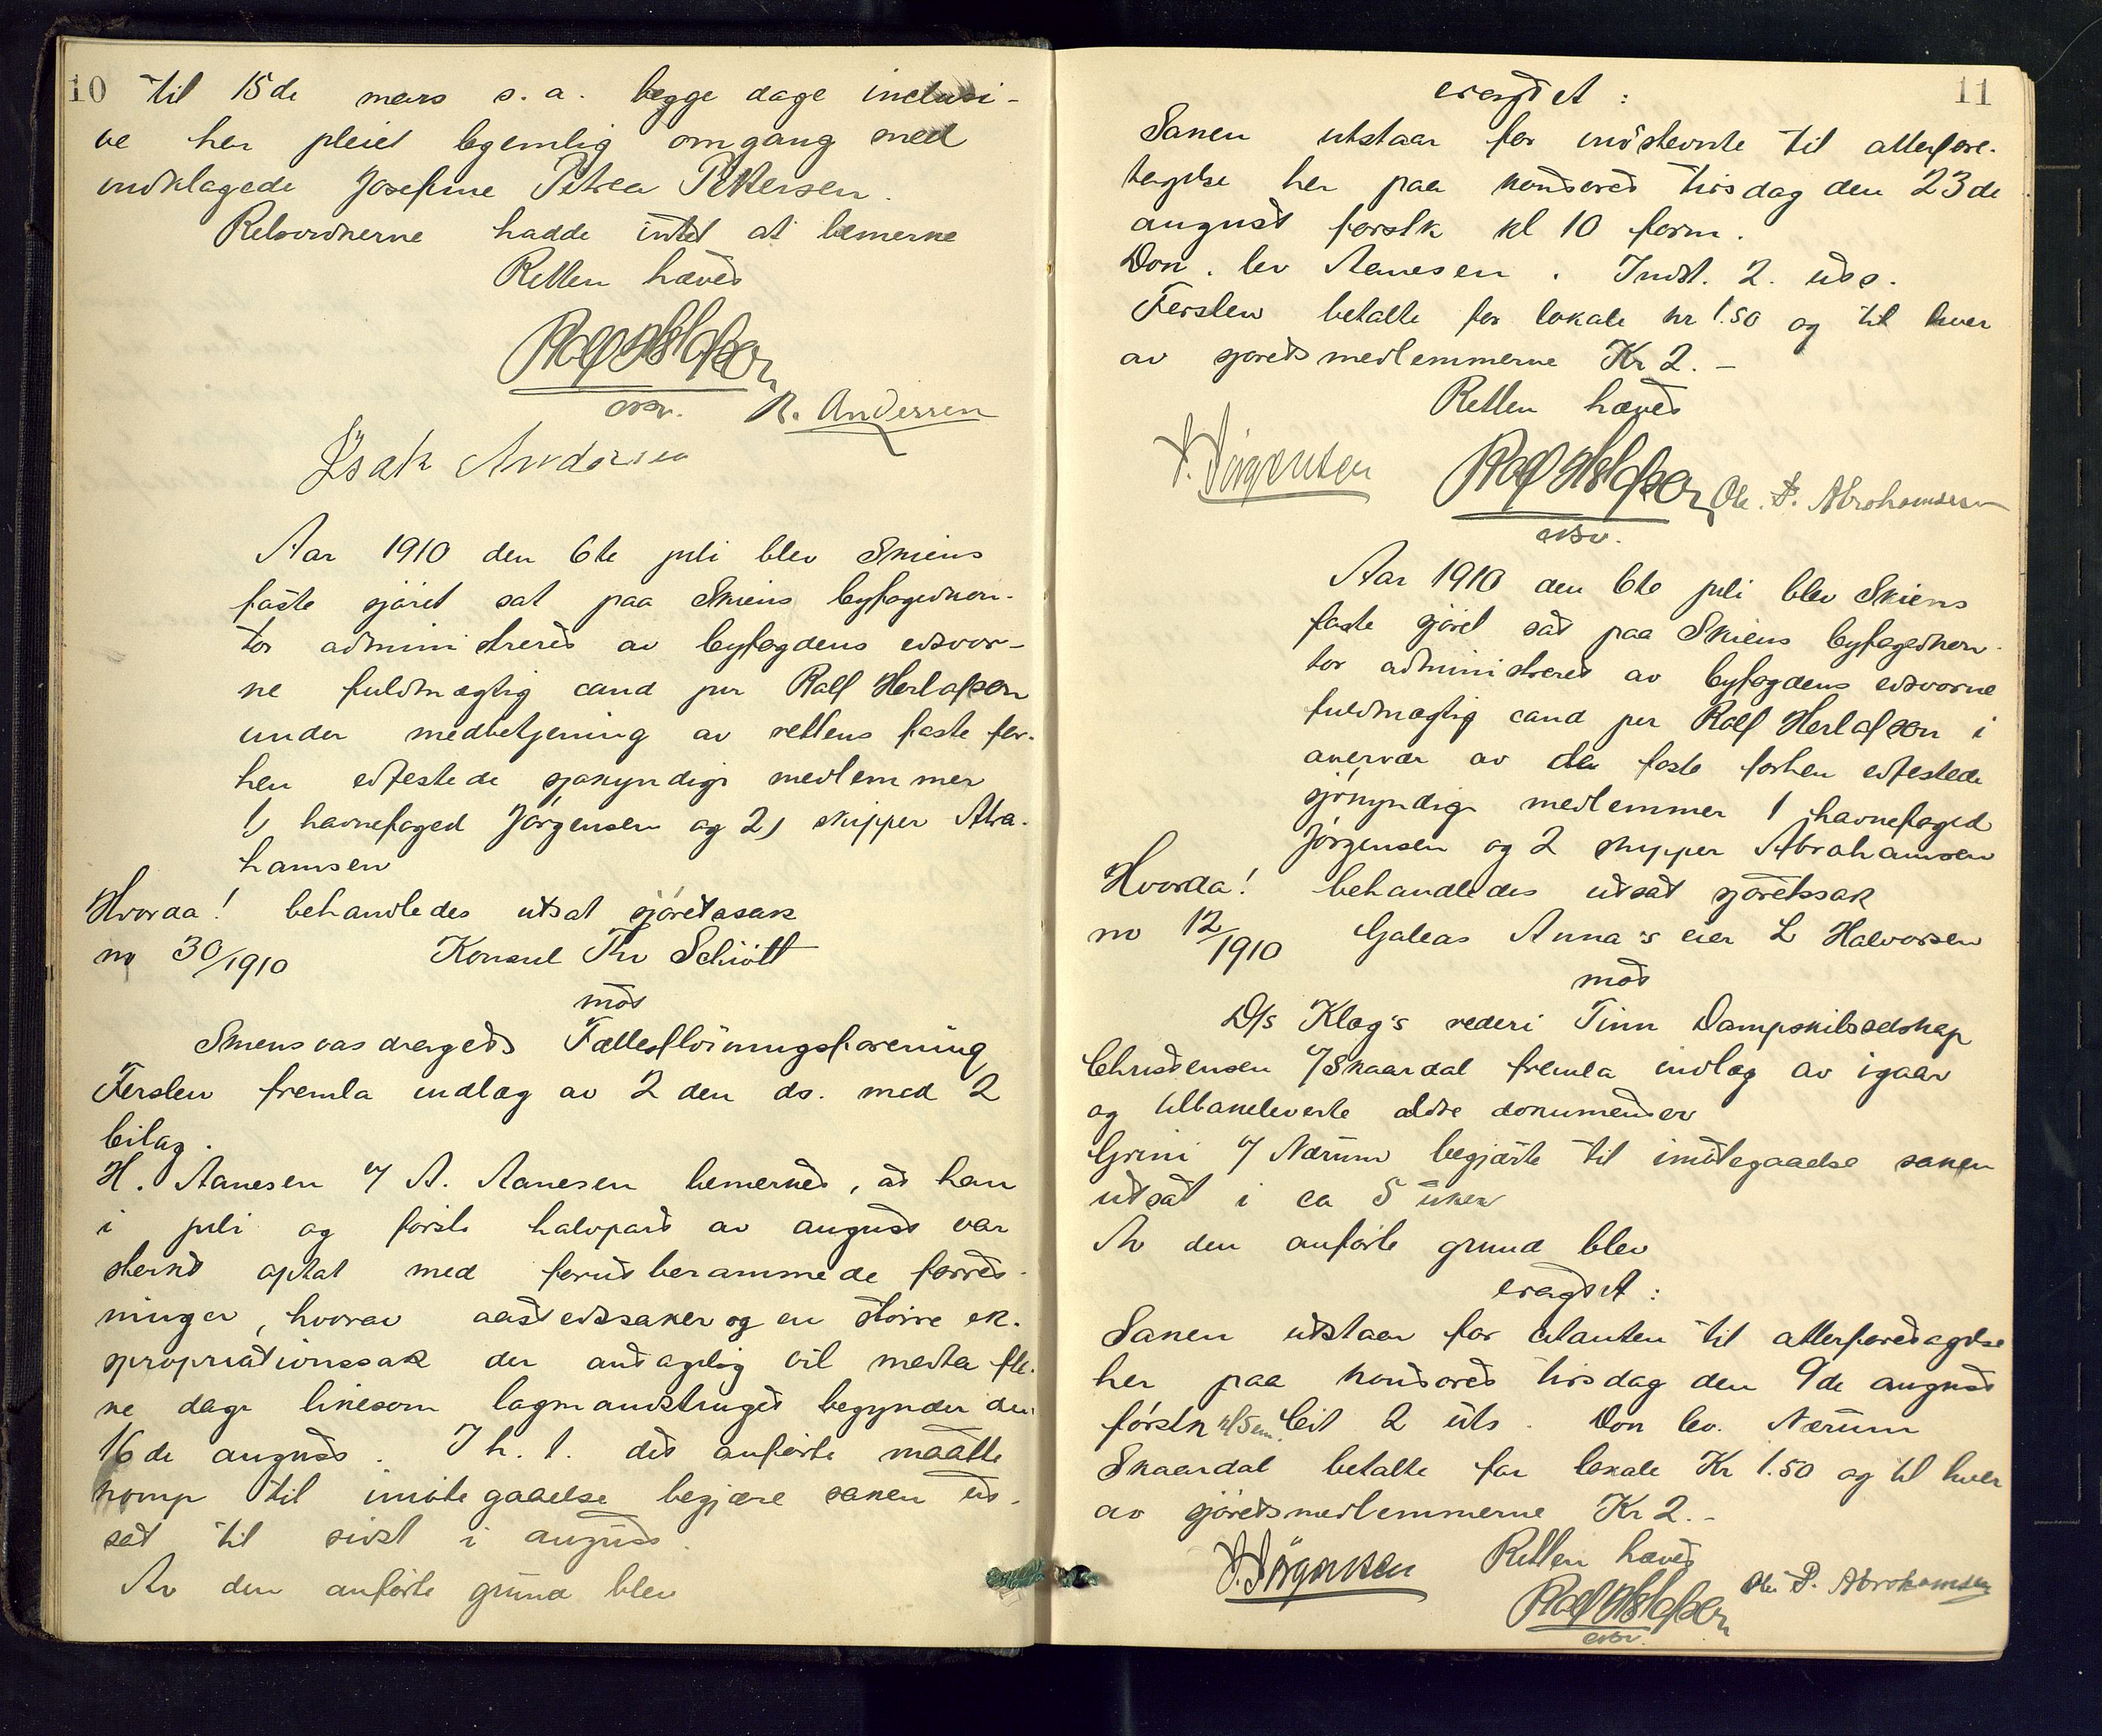 10 til 15de mars s. a. begge dage inclusi-
ve har pleiet legemlig omgang med
indklagede Josefine Petrea Pettersen.
Retsvidnerne hadde intet at bemerke
Retten hævet
Rolf Herlofson
edsv. R. Andersen
Isak Andersen
Aar 1910 den 6te juli blev Skiens
faste sjøret sat paa Skiens byfogedkon-
tor administreret av byfogdens edsvor-
ne fuldmægtig cand jur Rolf Herlofson
under medbetjening av rettens faste for-
hen edfestede sjøkyndige medlemmer
1) havnefoged Jørgensen og 2) skipper Abra-
hamsen
Hvorda! behandledes utsat sjøretssak
no 30/1910 Konsul Thv Schiøtt
mot
Skiensvasdragets Fællesfløtningsforening
Ferslew fremla indlæg av 2den ds. med 2
bilag.
H. Aanesen f/ A. Aanesen bemerket, at han
i juli og første halvpart av august var
sterkt optat med forutberammede forret-
ninger, hvorav aastedssaker og en større ek-
spropriationssak der antagelig vil medta fle-
re dage likesom lagmandstinget begynder den
16de august. I h. t. det anførte maatte
komp til imøtegaaelse begjære saken ut-
sat til sidst i august.
Av den anførte grund blev
11
eragtet:
Saken utstaar for indstevnte til atterfore-
tagelse her paa kontoret tirsdag den 23de
august førstk kl 10 form.
Dok. lev Aanesen. Indst. 2. uts.
Ferslew betalte for lokale kr 1.50 og til hver
av sjøretsmedlemmerne Kr 2.-
Retten hævet
J. Jørgensen Rolf Herlofson Ole P. Abrahamsen
edsv.
Aar 1910 den 6te juli blev Skiens
faste sjøret sat paa Skiens byfogedkon-
tor administreret av byfogdens edsvorne
fuldmægtig cand jur Rolf Herlofson i
overvær av de faste forhen edfestede
sjøkyndige medlemmer 1 havnefoged
Jørgensen og 2 skipper Abrahamsen
Hvorda! behandledes utsat sjøretssak
no 12/1910 Galeas Anna's eier L Halvorsen
mot
D/s Klog's rederi Tinn Dampskibsselskap
Christensen f/ Skaardal fremla indlæg av igaar
og tilbakeleverte ældre dokumenter
Grini f/ Nærum begjærte til imøtegaaelse saken
utsat i ca 5 uker
Av den anførte grund blev
eragtet:
Saken utstaar for citanten til atterforetagelse
her paa kontoret tirsdag den 9de august
førstk kl 5 em. Cit 2 uts. Dok lev. Nærum
Skaardal betalte for lokale Kr 1.50 og til hver
av sjøretsmedlemmerne Kr 2.-
J. Jørgensen Retten hævet
Rolf Herlofson Ole P. Abrahamsen
edsv.